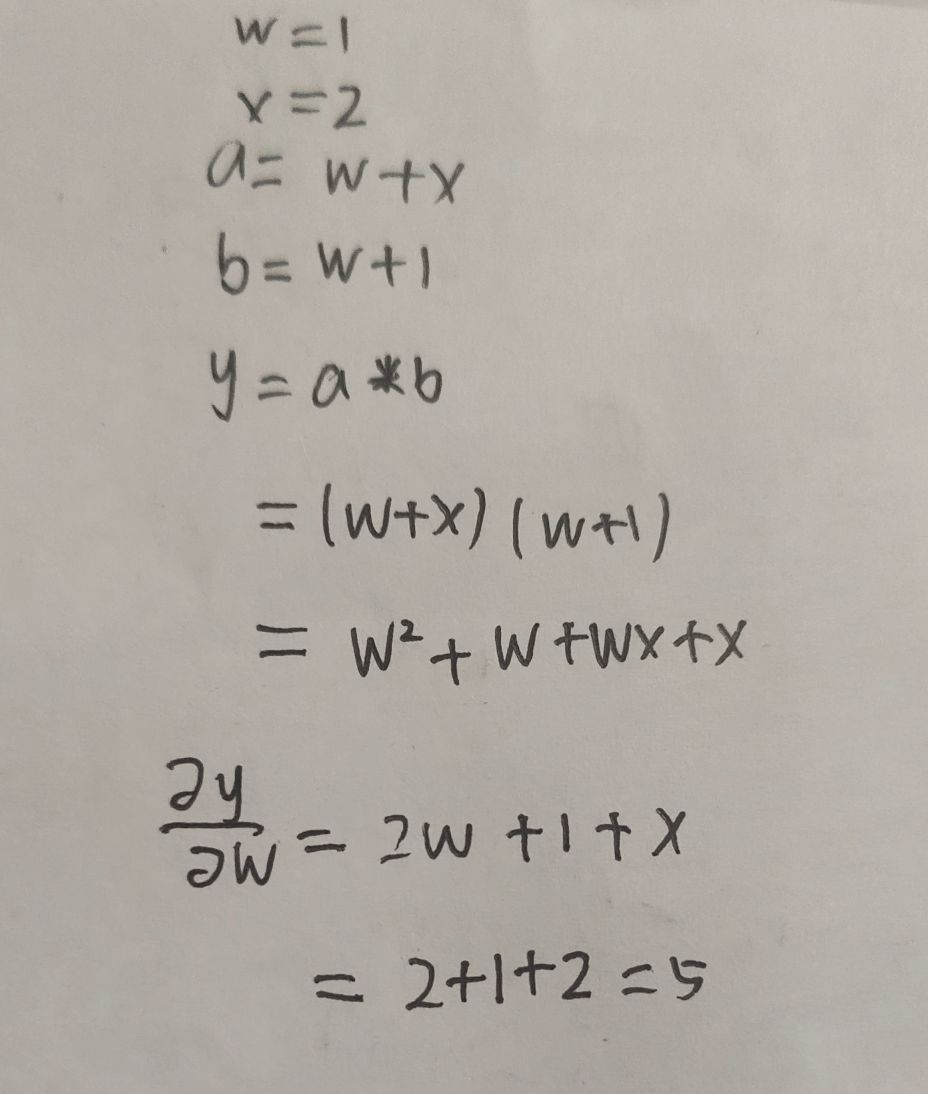 w=1
x=2
a= w+x
b= w+1
y=a*b
=(w+x)(w+1)
= w²+w+wx+x
∂y/∂w = 2w+1+x
= 2+1+2=5